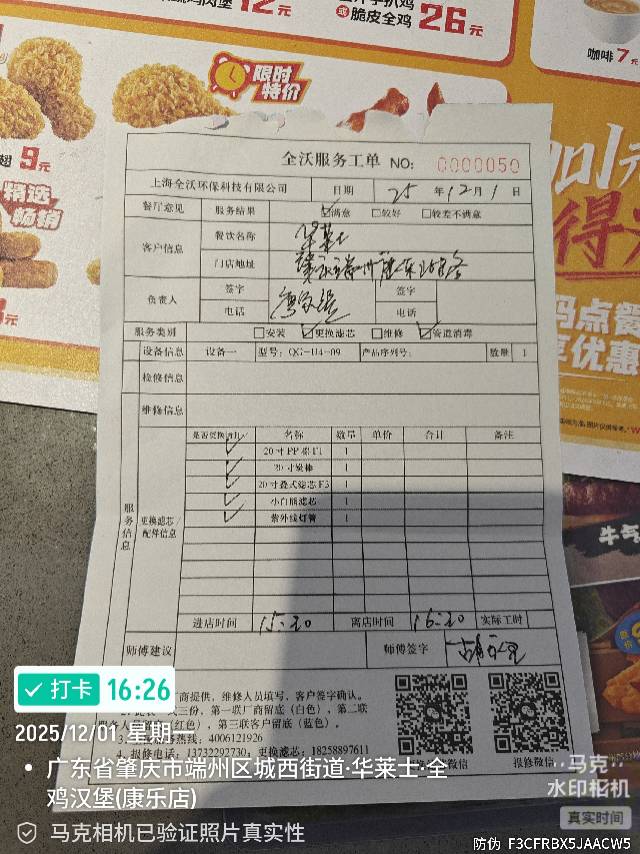 12元
或脆皮全鸡 26元
咖啡 7元
限时
特价
9元
精选
畅销
码点餐
享优惠
全沃服务工单 NO: 0000050
上海全沃环保科技有限公司 日期 25 年 12 月 1 日
餐厅意见 服务结果 ☑满意 □较好 □较差不满意
客户信息 餐饮名称 华莱士
门店地址
负责人 签字 签字
电话 电话
服务类别 □安装 ☑更换滤芯 □维修 ☑管道消毒
设备信息 设备一 型号: QG-U4-09 产品序列号: 数量 1
检修信息
维修信息
服务信息 更换滤芯/配件信息
名称 数量 单价 合计 备注
✓ 20寸PP棉F1 1
✓ 20寸炭棒 1
✓ 20寸叠式滤芯F3 1
✓ 小白熊滤芯 1
✓ 紫外线灯管 1
进店时间 15:30 离店时间 16:30 实际工时
师傅建议 师傅签字
商提供, 维修人员填写, 客户签字确认。
三份, 第一联厂商留底(白色), 第二联
(红色), 第三联客户留底(蓝色)。
热线: 4006121926
4. 报修电话: 13732292730; 更换滤芯: 18258897611
报修微信
打卡 16:26
2025/12/01 星期一
广东省肇庆市端州区城西街道·华莱士·全
鸡汉堡(康乐店)
马克相机已验证照片真实性
马克
水印相机
真实时间
防伪 F3CFRBX5JAACW5